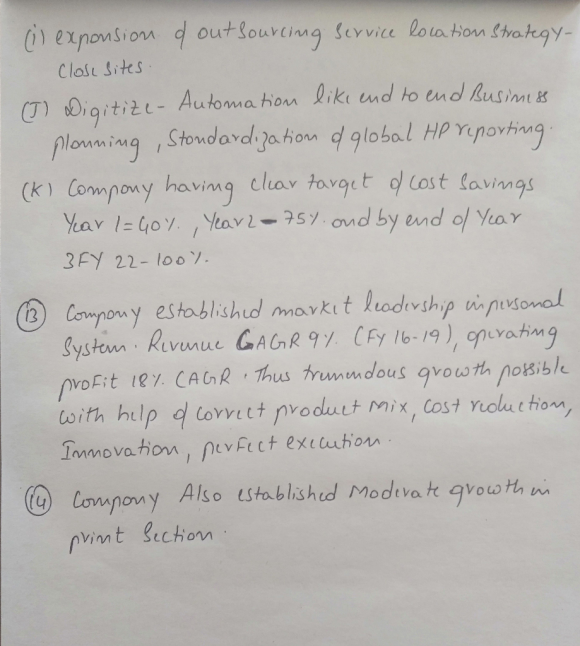 (i) expansion of outsourcing service location strategy-
close sites.
(J) Digitize - Automation like end to end Business
planning, Standardization of global HP reporting.
(K) Company having clear target of cost savings
Year 1 = 40%, Year 2 - 75% and by end of Year
3FY 22 - 100%.
(13) Company established market leadership in personal
System. Revenue CAGR 9% (FY 16-19), operating
profit 18% CAGR. Thus tremendous growth possible
with help of correct product mix, cost reduction,
Innovation, perfect execution.
(14) Company Also established Moderate growth in
print Section.